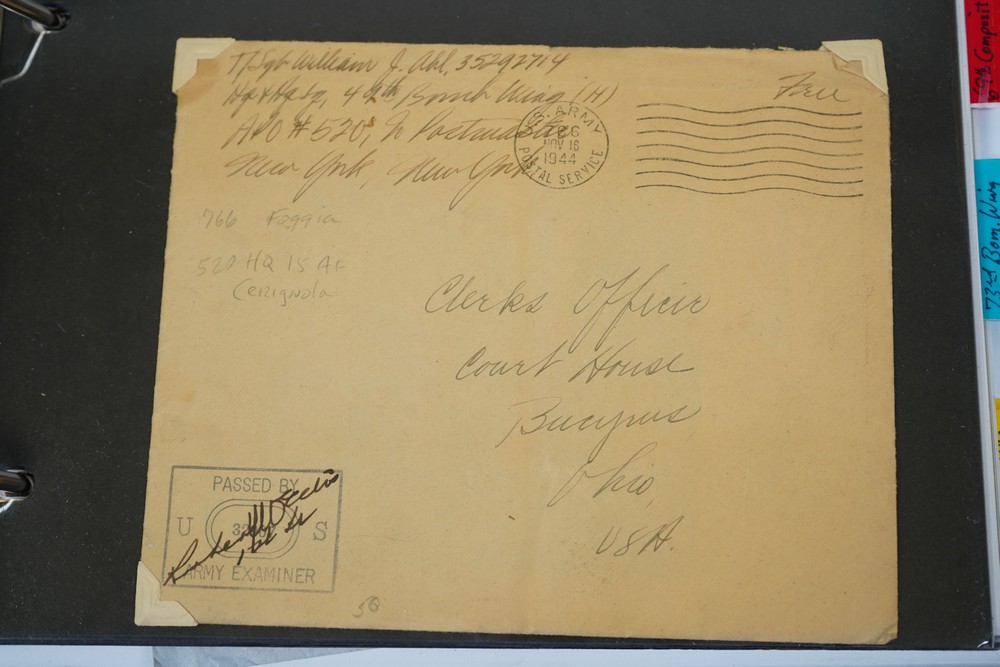 T/Sgt William J. Ahl, 35292714
Hq & Hq Sq, 49th Bomb Wing (H)
APO #520, % Postmaster
New York, New York
Free
U.S. ARMY
NOV 16
1944
POSTAL SERVICE
766 Foggia
520 HQ 15 AF
Cerignola
Clerks Officer
Court House
Bucyrus
Ohio,
USA.
PASSED BY
U S
ARMY EXAMINER
1st Lt
50
Composit
73rd Bom. Wing